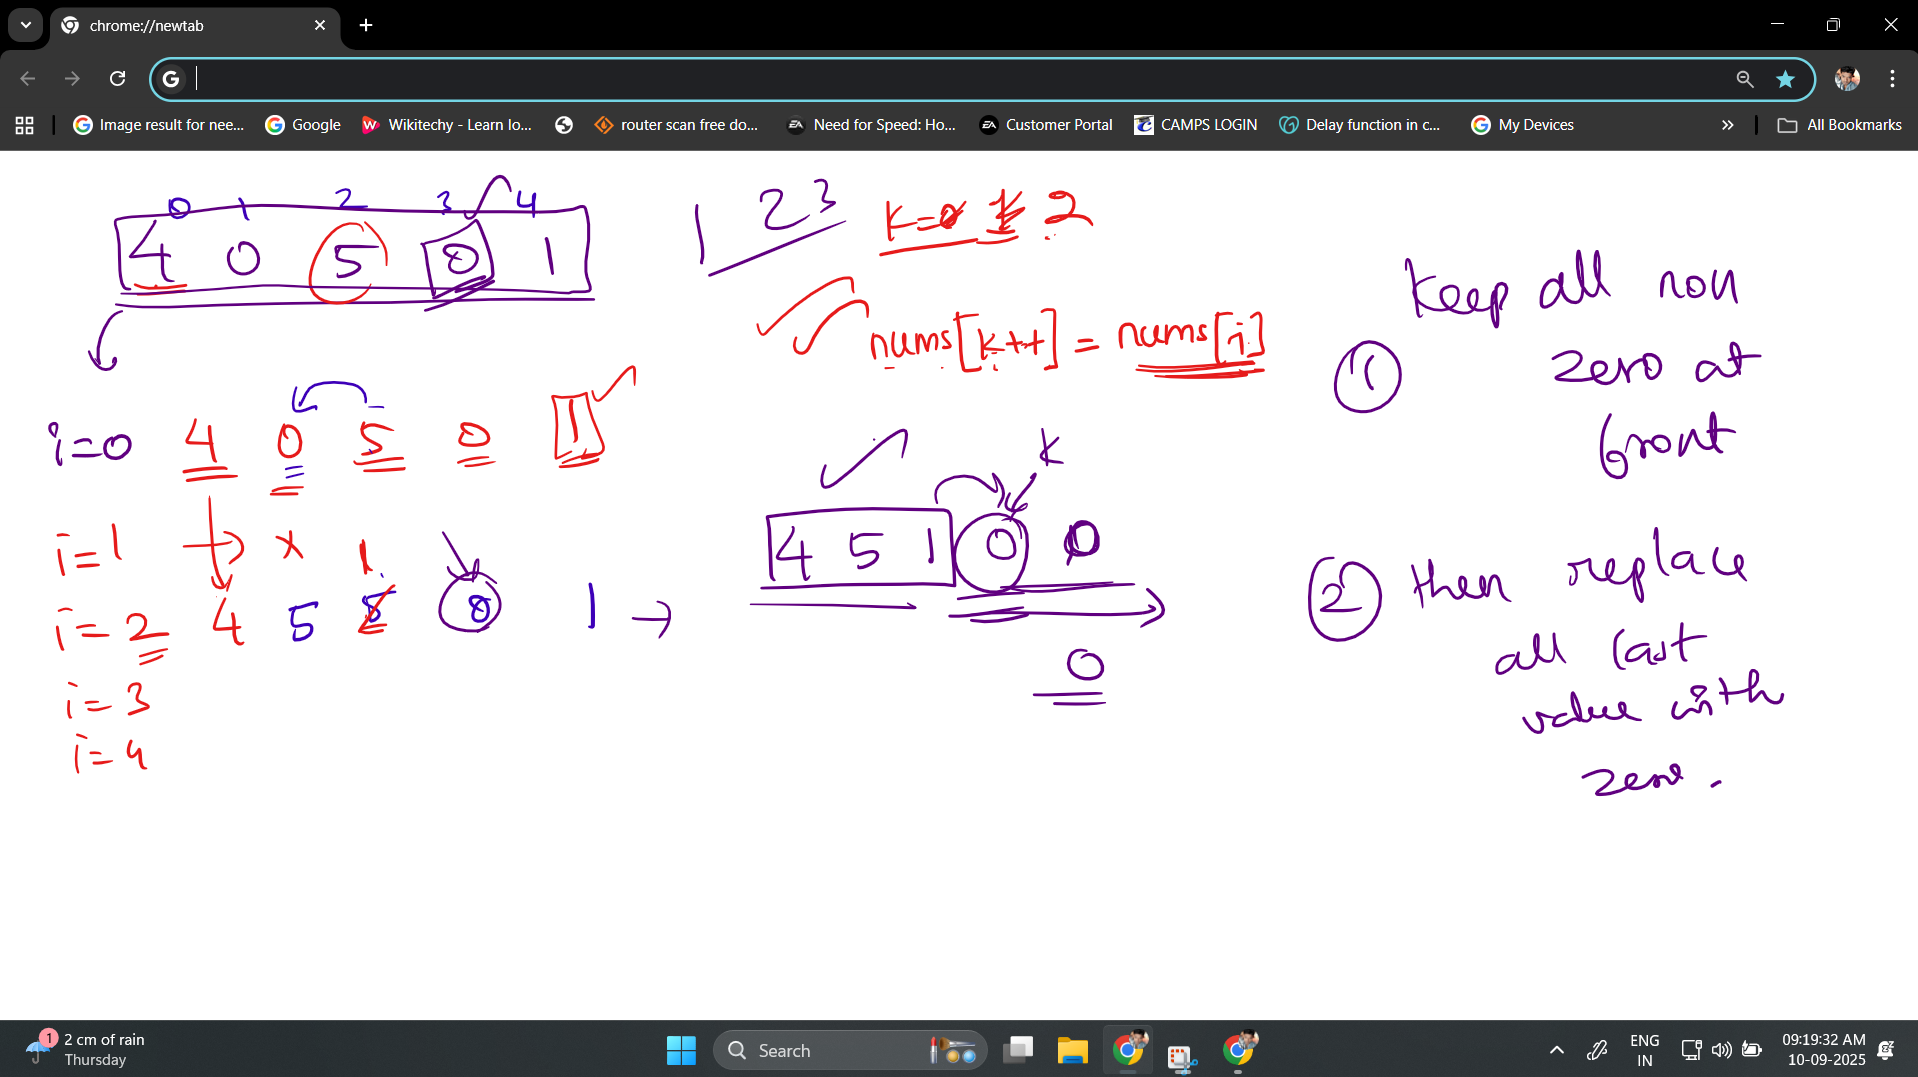 chrome://newtab
Image result for nee...
Google
Wikitechy - Learn lo...
router scan free do...
Need for Speed: Ho...
Customer Portal
CAMPS LOGIN
Delay function in c...
My Devices
All Bookmarks
0 1 2 3 4
4 0 5 0 1
1 2 3
k=0 1 2
nums[k++] = nums[i]
i=0 4 0 5 0 1
i=1 → x 1
i=2 4 5 5 0 1 →
i=3
i=4
k
4 5 1 0 0
0
1
Keep all non
zero at
front
2 then replace
all last
value with
zero.
1
2 cm of rain
Thursday
Search
ENG
IN
09:19:32 AM
10-09-2025